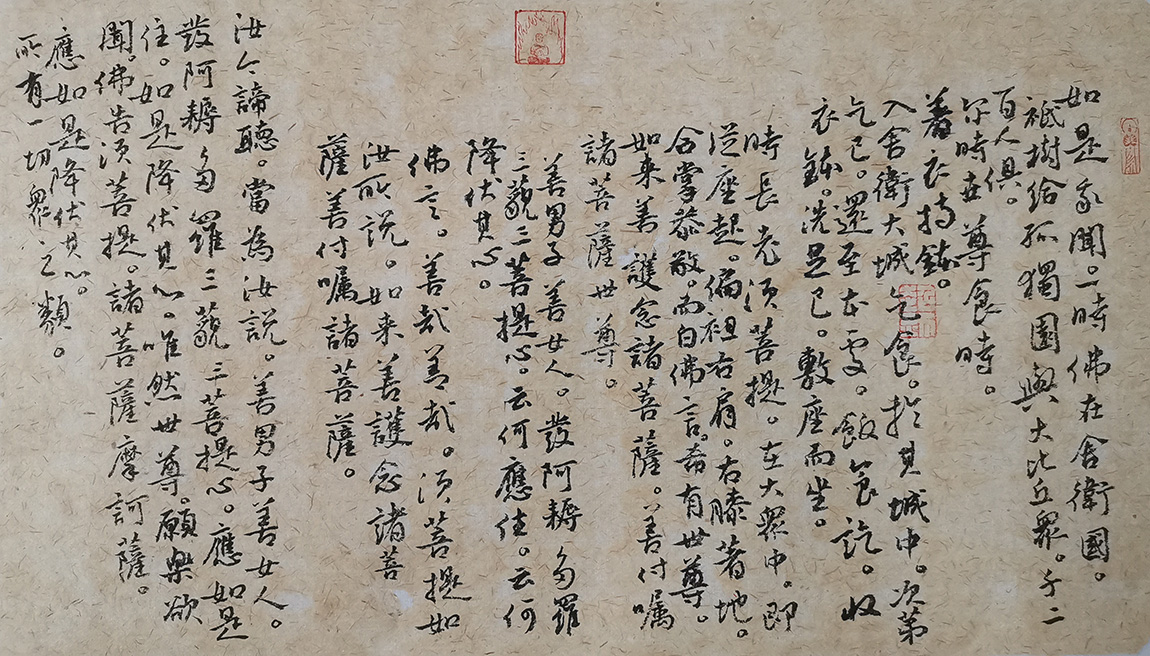 如是我聞。一時佛在舍衛國。
祇樹給孤獨園與大比丘眾。千二
百人俱。
尔時世尊食時。
著衣持鉢。
入舍衛大城乞食。於其城中。次第
乞已。還至本處。飯食訖。收
衣鉢。洗足已。敷座而坐。
時長老須菩提。在大眾中。即
從座起。偏袒右肩。右膝著地。
合掌恭敬。而白佛言。希有世尊。
如来善護念諸菩薩。善付嘱
諸菩薩世尊。
善男子善女人。發阿耨多羅
三藐三菩提心。云何應住。云何
降伏其心。
佛言。善哉善哉。須菩提如
汝所說。如来善護念諸菩
薩善付嘱諸菩薩。
汝今諦聽。當為汝說。善男子善女人。
發阿耨多羅三藐三菩提心。應如是
住。如是降伏其心。唯然世尊。願樂欲
聞。佛告須菩提。諸菩薩摩訶薩。
應如是降伏其心。
所有一切眾之類。